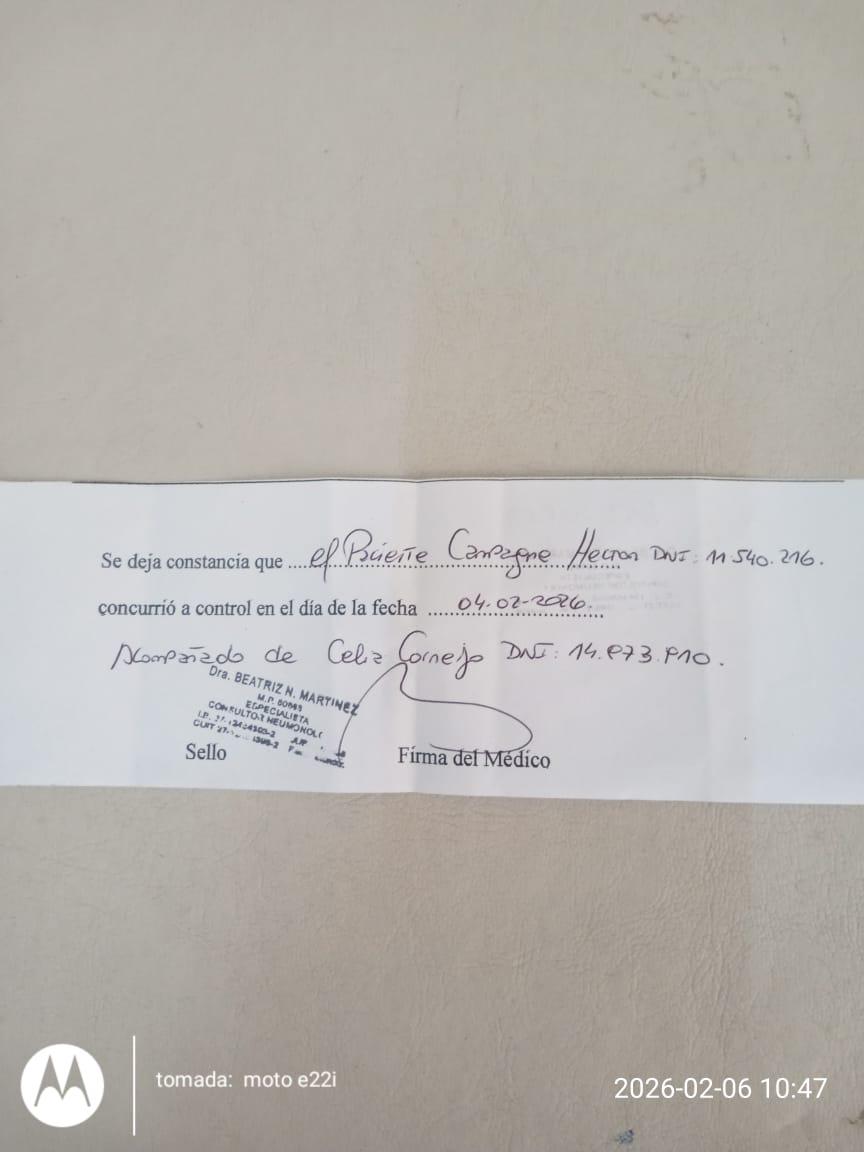 Se deja constancia que ....el Paciente Campagne Hector DNI: 11.540.216.
concurrió a control en el día de la fecha ....04-02-2026.
Acompañado de Celia Cornejo DNI: 14.873.810.
Dra. BEATRIZ N. MARTINEZ
M.P.
ESPECIALISTA
CONSULTOR NEUMONOL
I.P.
CUIT
Sello
Firma del Médico
tomada: moto e22i
2026-02-06 10:47